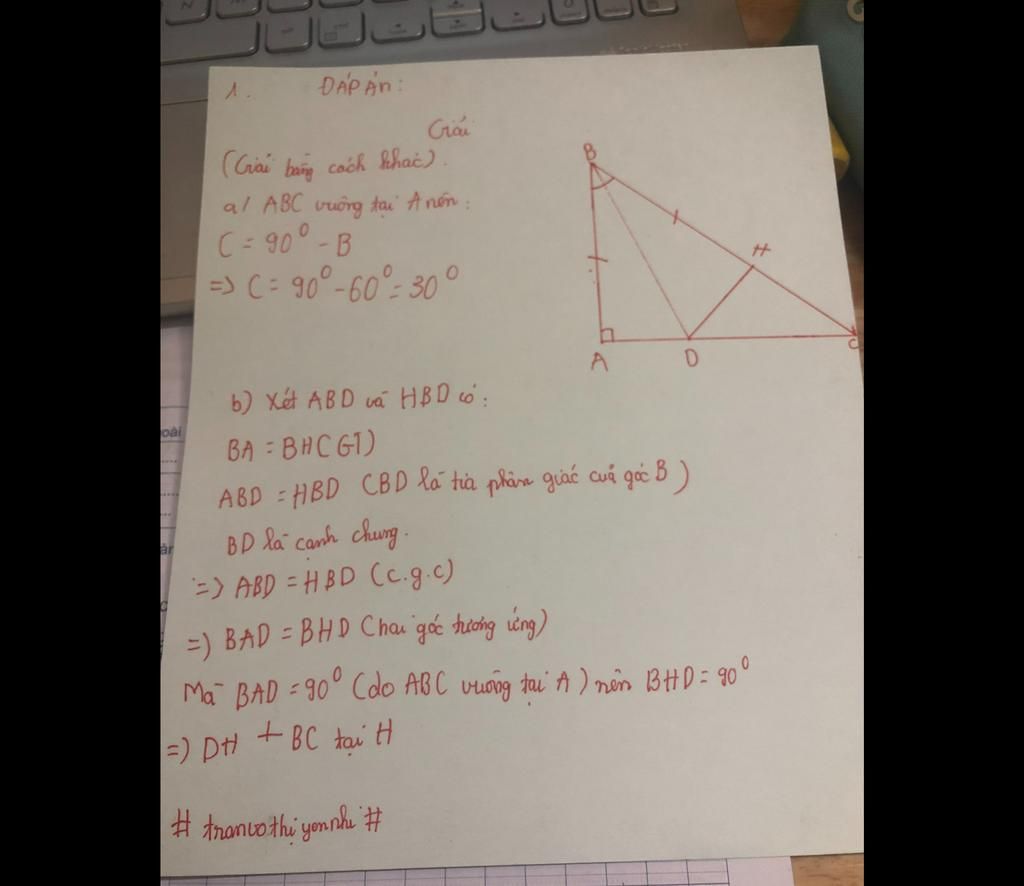 1. ĐÁP ÁN:
Giải
(Giải bằng cách khác).
a/ ABC vuông tại A nên:
C = 90⁰ - B
=> C = 90⁰ - 60⁰ = 30⁰
B
H
A
D
C
b) Xét ABD và HBD có:
BA = BH (GT)
ABD = HBD (BD là tia phân giác của góc B)
BD là cạnh chung.
=> ABD = HBD (c.g.c)
=> BAD = BHD (hai góc tương ứng)
Mà BAD = 90⁰ (do ABC vuông tại A) nên BHD = 90⁰
=> DH ⊥ BC tại H
# tranvothịyennhi #
oài